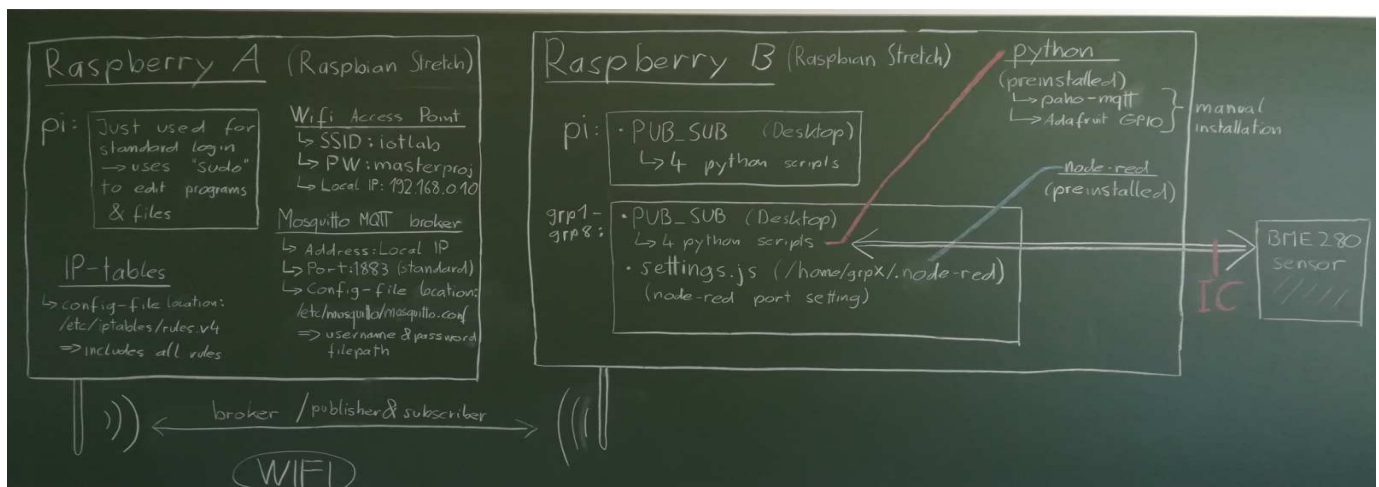 Raspberry A (Raspbian Stretch)
pi:
Just used for
standard login
→ uses "sudo"
to edit programs
& files
IP-tables
↳ config-file location:
/etc/iptables/rules.v4
⇒ includes all rules
Wifi Access Point
↳ SSID: iotlab
↳ PW: masterproj
↳ Local IP: 192.168.0.10
Mosquitto MQTT broker
↳ Address: Local IP
↳ Port: 1883 (standard)
↳ Config-file location:
/etc/mosquitto/mosquitto.conf
⇒ username & password
filepath
Raspberry B (Raspbian Stretch)
pi:
• PUB_SUB (Desktop)
↳ 4 python scripts
grp1-
grp8:
• PUB_SUB (Desktop)
↳ 4 python scripts
• settings.js (/home/grpX/.node-red)
(node-red port setting)
python
(preinstalled)
↳ paho-mqtt
↳ Adafruit GPIO
manual
installation
node-red
(preinstalled)
IC
BME280
sensor
broker / publisher & subscriber
WIFI